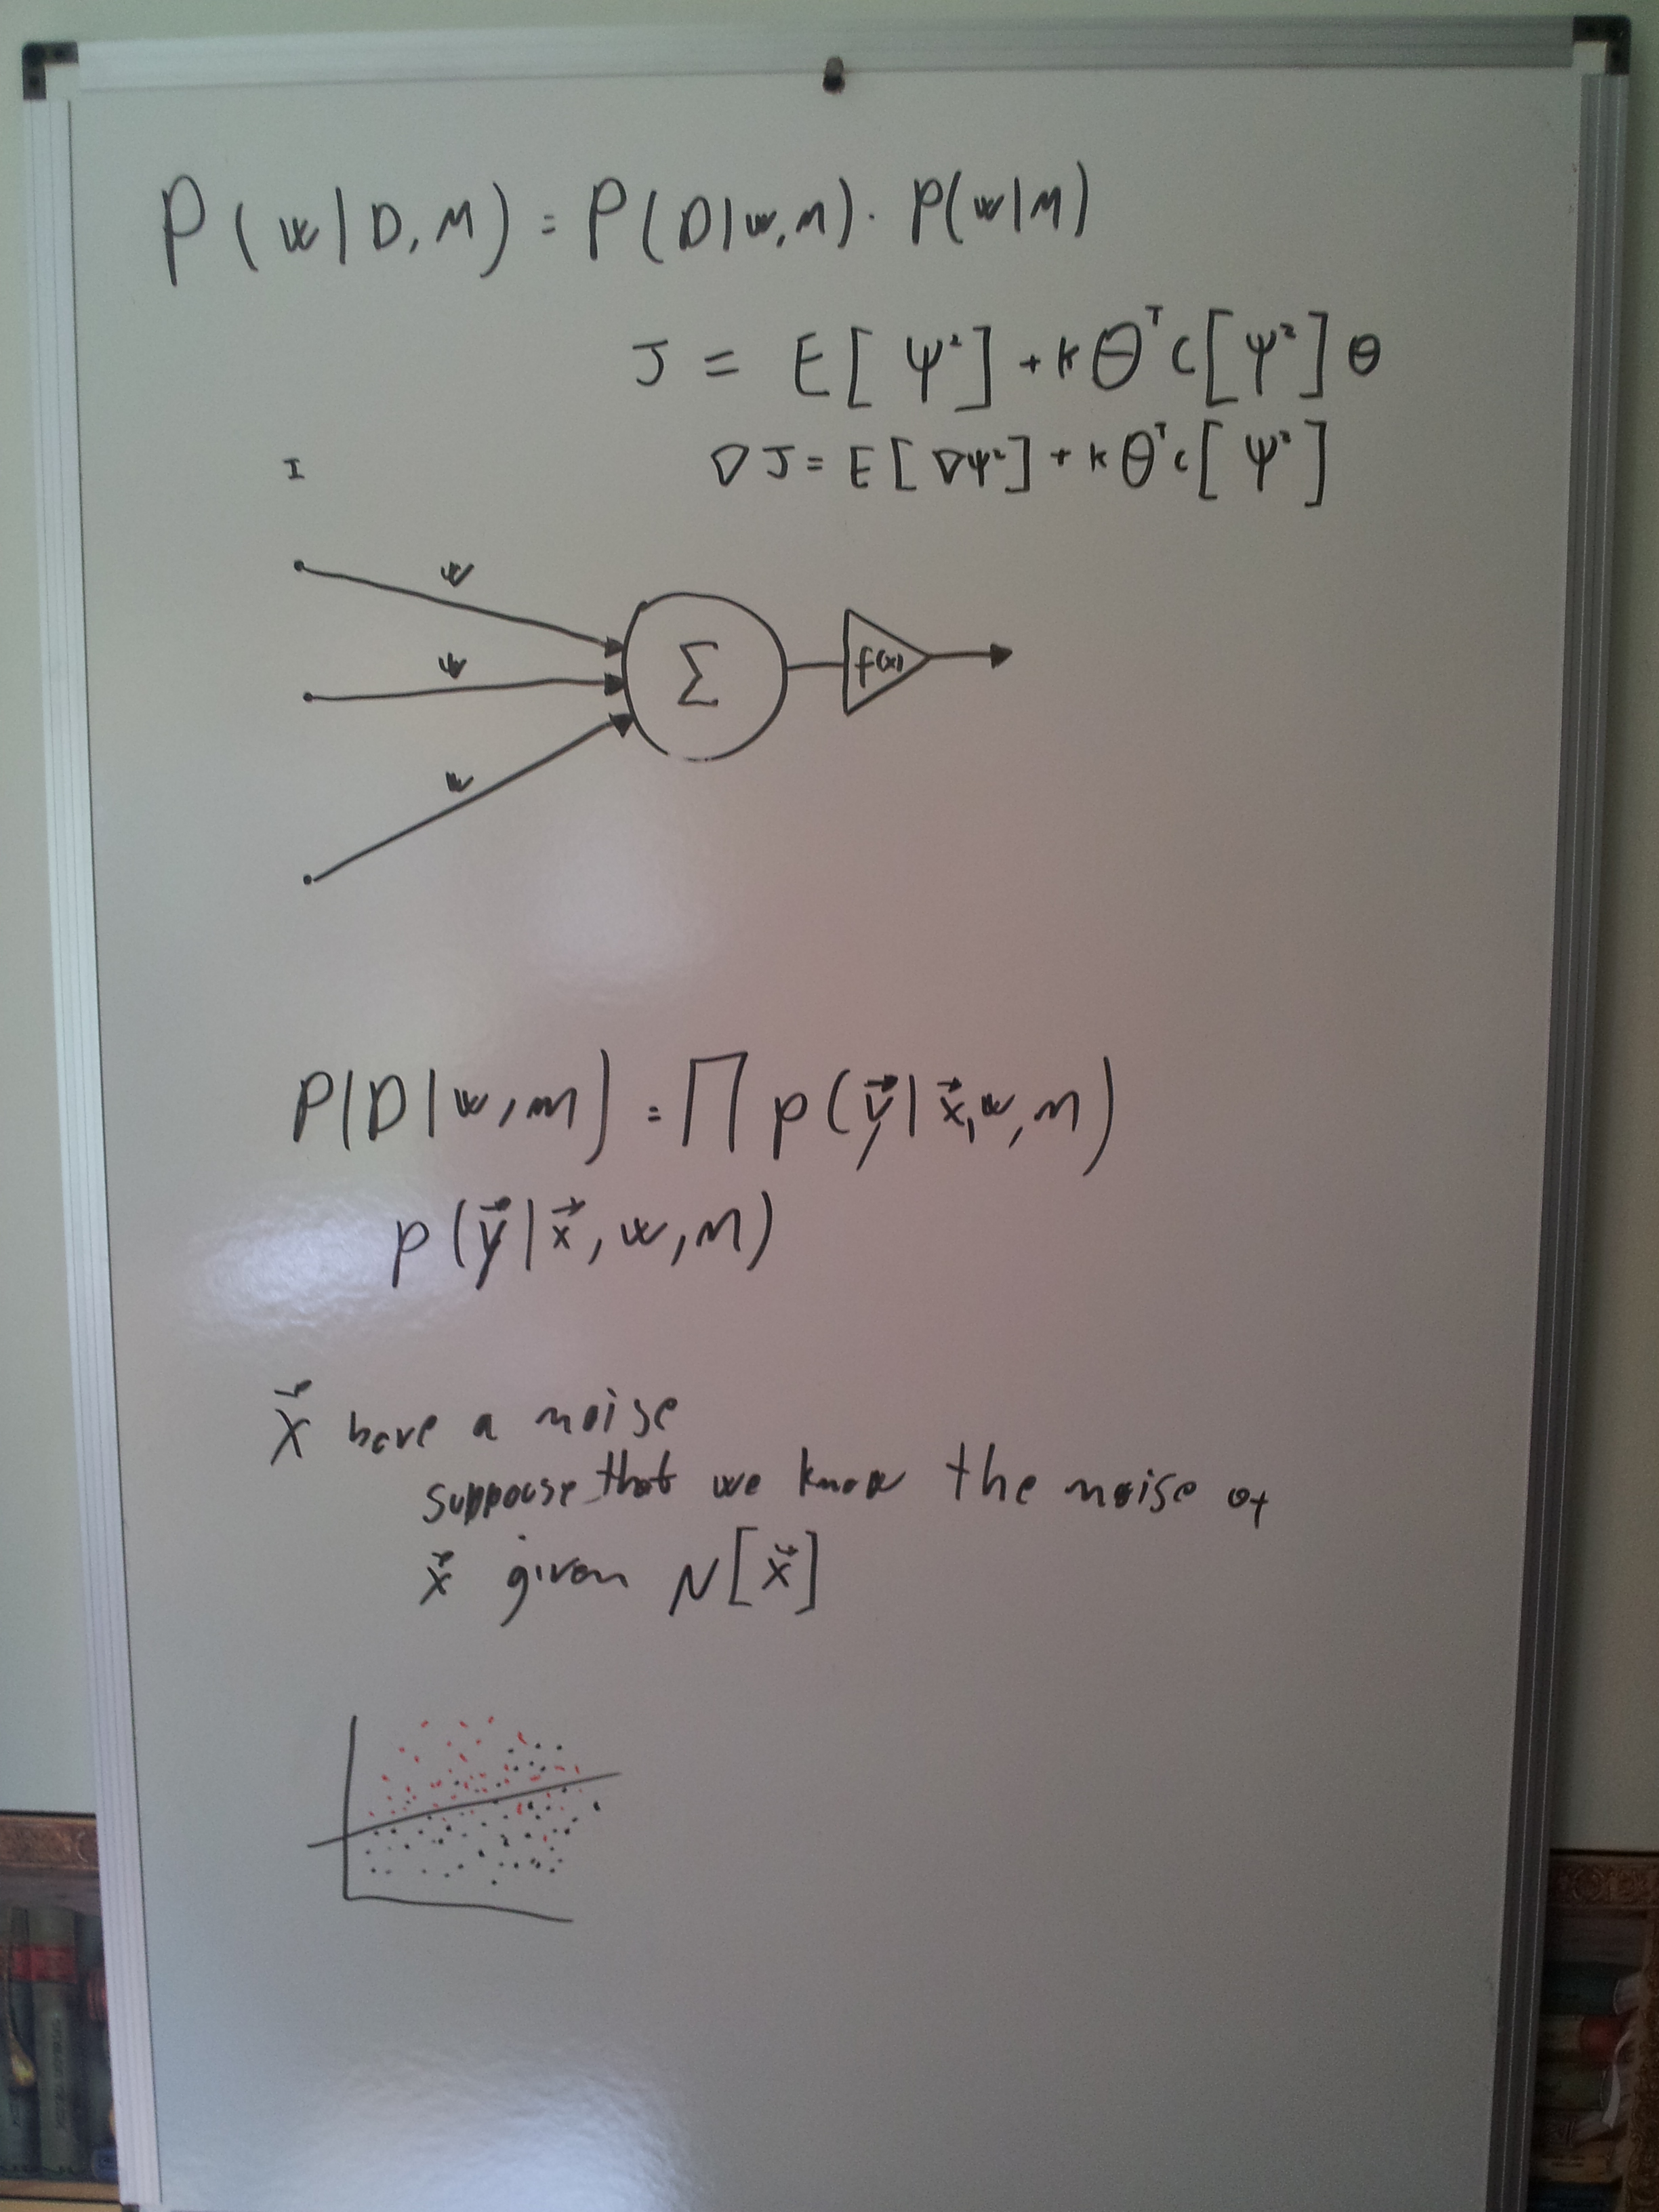 P(w|D,M) = P(D|w,M) · P(w|M)
J = E[ψ²] + κθᵀC[ψ²]θ
∇J = E[∇ψ²] + κθᵀC[ψ²]
I
w
w
Σ
f(x)
w
P(D|w,M) = ∏ p(y⃗|x⃗,w,M)
p(y⃗|x⃗,w,M)
x⃗ have a noise
suppouse that we know the noise of
x⃗ given N[x⃗]